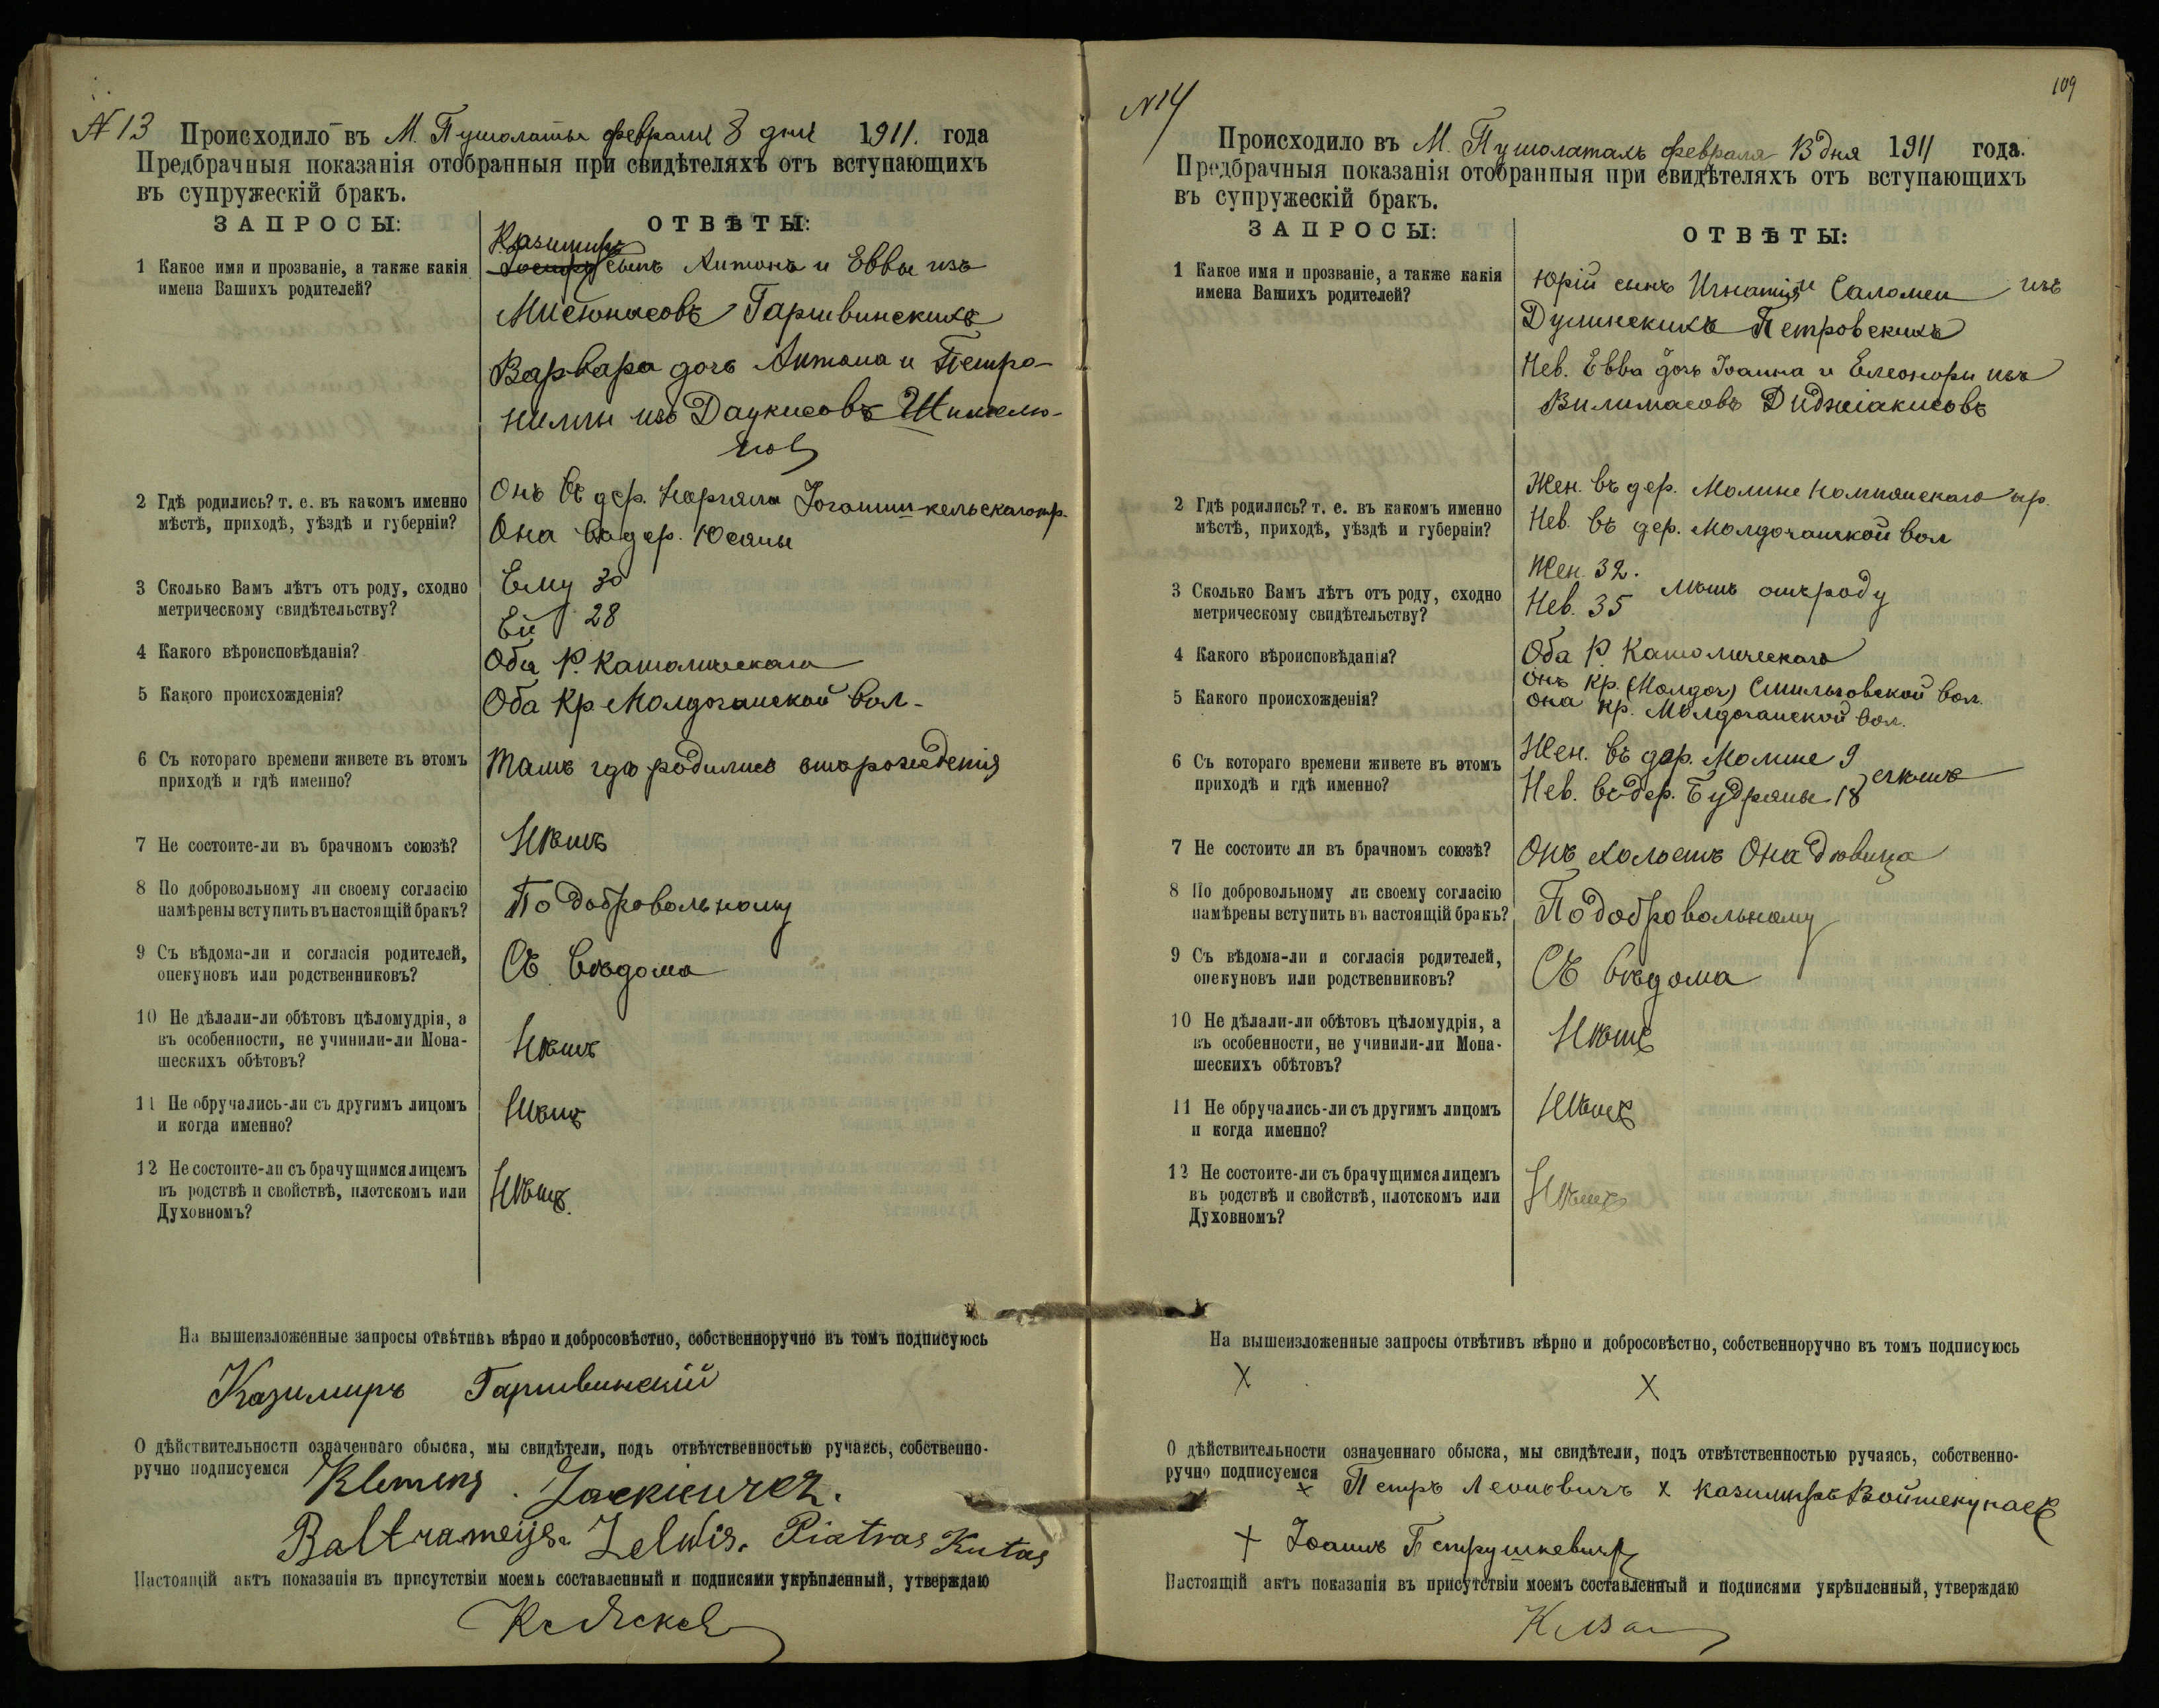 № 13 Происходило въ М. Пушолаты февраля 8 дня 1911. года
Предбрачныя показанія отобранныя при свидѣтеляхъ отъ вступающихъ
въ супружескій бракъ.
ЗАПРОСЫ:
ОТВѢТЫ:
1 Какое имя и прозваніе, а также какія
имена Вашихъ родителей?
Казимиръ
сынъ Антона и Еввы изъ
Гаршвинскихъ
Варвара дочь Антона и Петро-
нилли изъ Даукисовъ
2 Гдѣ родились? т. е. въ какомъ именно
мѣстѣ, приходѣ, уѣздѣ и губерніи?
Онъ въ дер.
Она въ дер. Юсаны
3 Сколько Вамъ лѣтъ отъ роду, сходно
метрическому свидѣтельству?
Ему 30
Ей 28
4 Какого вѣроисповѣданія?
Оба Р. Католическаго
5 Какого происхожденія?
Оба Кр Молдочанской вол.
6 Съ котораго времени живете въ этомъ
приходѣ и гдѣ именно?
Тамъ гдѣ родились отъ рожденія
7 Не состоите-ли въ брачномъ союзѣ?
Нѣтъ
8 По добровольному ли своему согласію
намѣрены вступить въ настоящій бракъ?
По добровольному
9 Съ вѣдома-ли и согласія родителей,
опекуновъ или родственниковъ?
Съ вѣдома
10 Не дѣлали-ли обѣтовъ цѣломудрія, а
въ особенности, не учинили-ли Мона-
шескихъ обѣтовъ?
Нѣтъ
11 Не обручались-ли съ другимъ лицомъ
и когда именно?
Нѣтъ
12 Не состоите-ли съ брачущимся лицемъ
въ родствѣ и свойствѣ, плотскомъ или
Духовномъ?
Нѣтъ.
На вышеизложенные запросы отвѣтивъ вѣрно и добросовѣстно, собственноручно въ томъ подписуюсь
Казимиръ Гаршвинскій
О дѣйствительности означеннаго обыска, мы свидѣтели, подъ отвѣтственностью ручаясь, собственно-
ручно подписуемся
Klemens Jackiewicz.
Baltramejs. Zelwis. Piatras Kutas
Настоящій актъ показанія въ присутствіи моемъ составленный и подписями укрѣпленный, утверждаю
109
№ 14
Происходило въ М. Пушолатахъ февраля 13 дня 1911 года.
Предбрачныя показанія отобранныя при свидѣтеляхъ отъ вступающихъ
въ супружескій бракъ.
ЗАПРОСЫ:
ОТВѢТЫ:
1 Какое имя и прозваніе, а также какія
имена Вашихъ родителей?
Юрій сынъ Игнатія и Саломеи изъ
Дулинскихъ Петровскихъ
Нев. Евва дочь Іоанна и Елеоноры изъ
Вилимасовъ Диджіакисовъ
2 Гдѣ родились? т. е. въ какомъ именно
мѣстѣ, приходѣ, уѣздѣ и губерніи?
Жен. въ дер. Молине пр.
Нев. въ дер. Молдочанской вол
3 Сколько Вамъ лѣтъ отъ роду, сходно
метрическому свидѣтельству?
Жен. 32.
Нев. 35 лѣтъ отъ роду
4 Какого вѣроисповѣданія?
Оба Р. Католическаго
5 Какого происхожденія?
Онъ кр. (Молдоч) Смильговской вол.
Она кр. Молдочанской вол.
6 Съ котораго времени живете въ этомъ
приходѣ и гдѣ именно?
Жен. въ дер. Молине 9
Нев. въ дер. Будряны 18
7 Не состоите ли въ брачномъ союзѣ?
Онъ холостъ Она дѣвица
8 По добровольному ли своему согласію
намѣрены вступить въ настоящій бракъ?
По добровольному
9 Съ вѣдома-ли и согласія родителей,
опекуновъ или родственниковъ?
Съ вѣдома
10 Не дѣлали-ли обѣтовъ цѣломудрія, а
въ особенности, не учинили-ли Мона-
шескихъ обѣтовъ?
Нѣтъ
11 Не обручались-ли съ другимъ лицомъ
и когда именно?
Нѣтъ
12 Не состоите-ли съ брачущимся лицемъ
въ родствѣ и свойствѣ, плотскомъ или
Духовномъ?
Нѣтъ
На вышеизложенные запросы отвѣтивъ вѣрно и добросовѣстно, собственноручно въ томъ подписуюсь
X X
О дѣйствительности означеннаго обыска, мы свидѣтели, подъ отвѣтственностью ручаясь, собственно-
ручно подписуемся
x Петръ Леоновичъ x Казимиръ Войшекунасъ
+ Іоаннъ Петрушкевичъ
Настоящій актъ показанія въ присутствіи моемъ составленный и подписями укрѣпленный, утверждаю